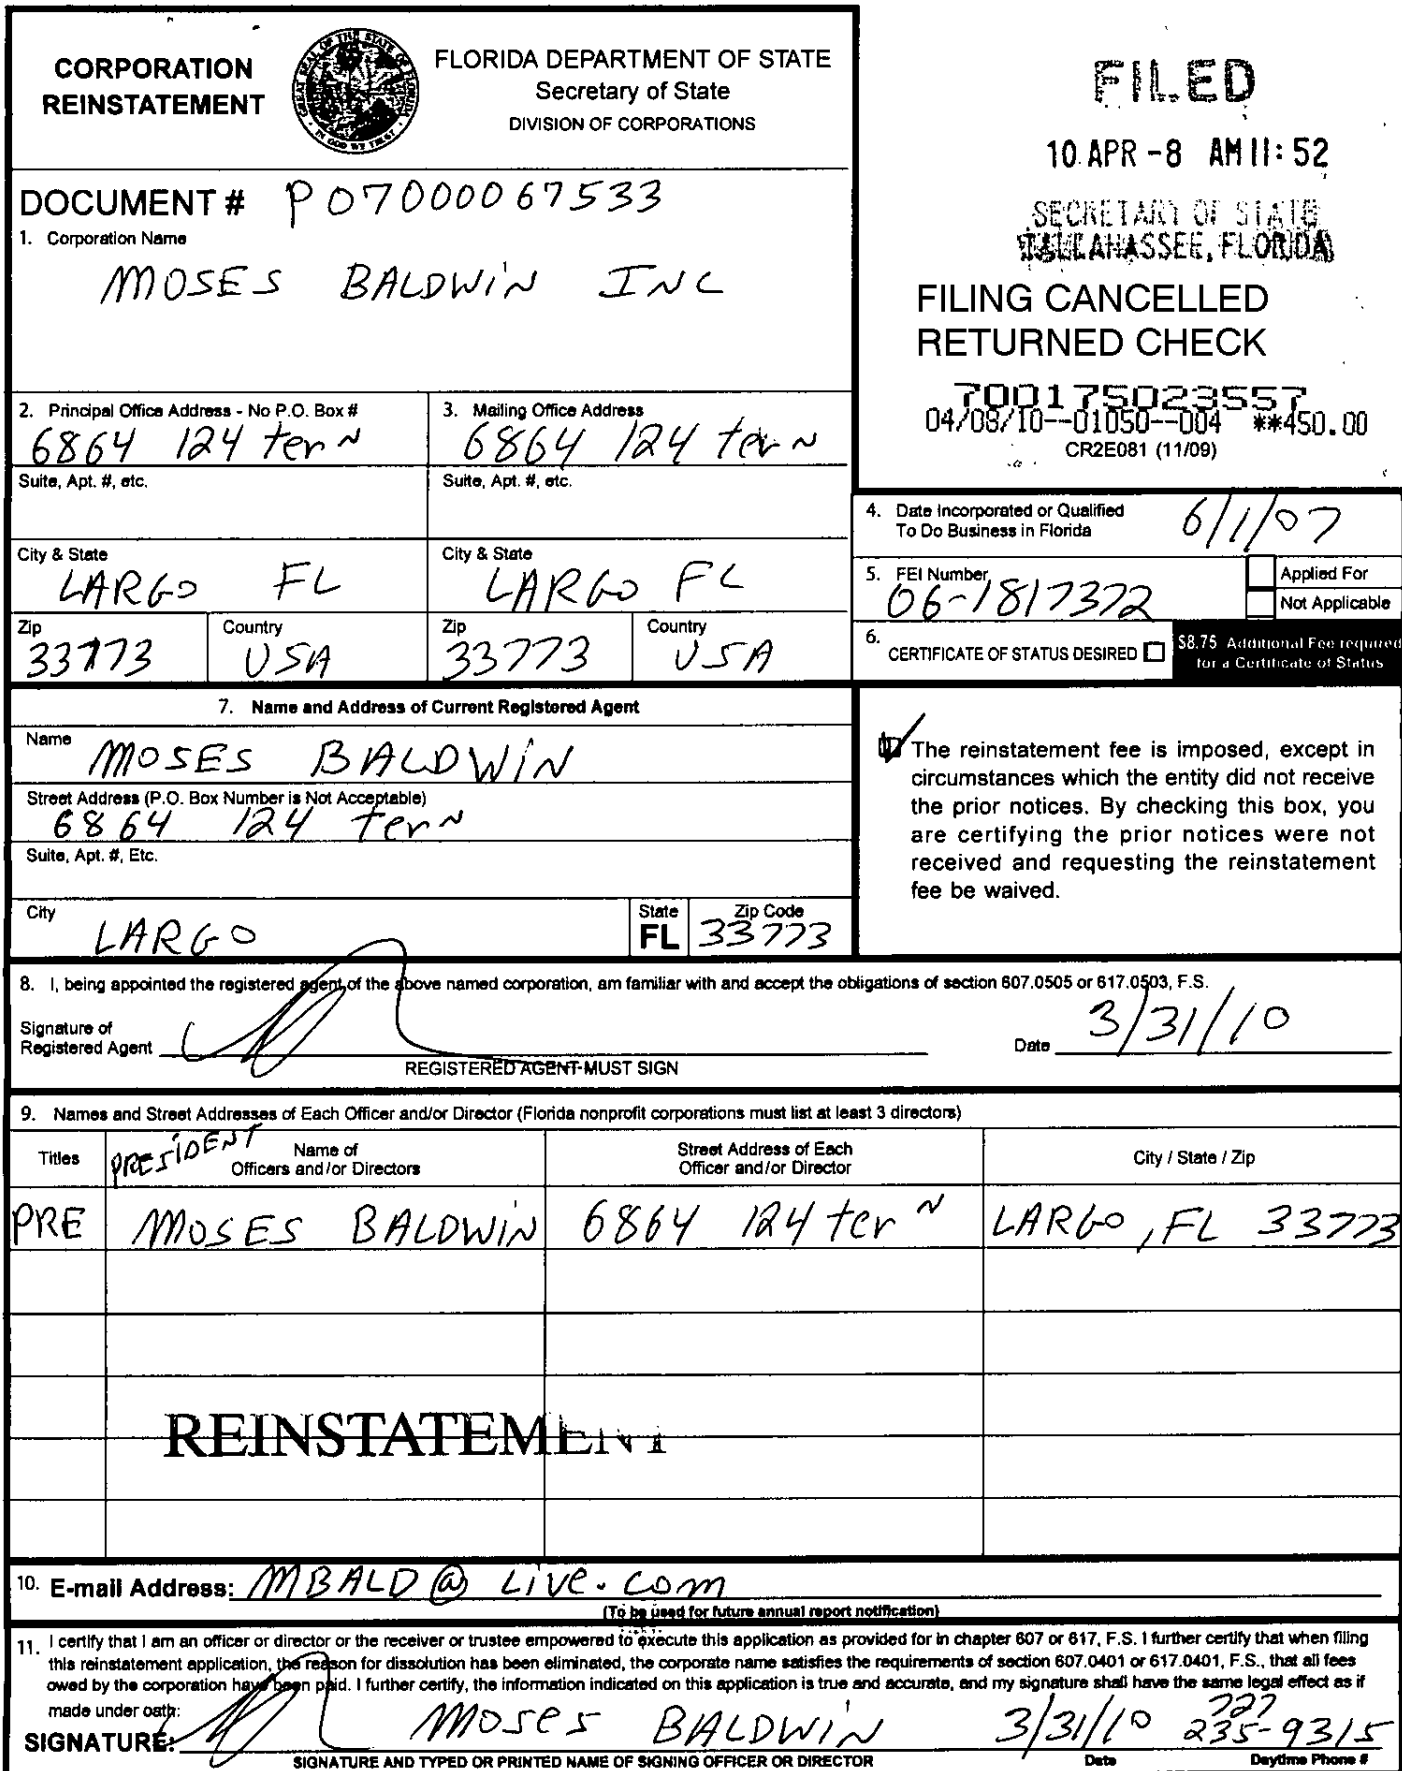 CORPORATION
REINSTATEMENT
GREAT SEAL OF THE STATE OF FLORIDA
IN GOD WE TRUST
FLORIDA DEPARTMENT OF STATE
Secretary of State
DIVISION OF CORPORATIONS
FILED
10 APR -8 AM 11:52
SECRETARY OF STATE
TALLAHASSEE, FLORIDA
FILING CANCELLED
RETURNED CHECK
700175023557
04/08/10--01050--004 **450.00
CR2E081 (11/09)
DOCUMENT # P07000067533
1. Corporation Name
MOSES BALDWIN INC
2. Principal Office Address - No P.O. Box #
6864 124 ter N
3. Mailing Office Address
6864 124 ter N
Suite, Apt. #, etc.
Suite, Apt. #, etc.
City & State
LARGO FL
City & State
LARGO FL
Zip
33773
Country
USA
Zip
33773
Country
USA
4. Date Incorporated or Qualified
To Do Business in Florida
6/1/07
5. FEI Number
06-1817372
Applied For
Not Applicable
6. CERTIFICATE OF STATUS DESIRED
$8.75 Additional Fee required
for a Certificate of Status
7. Name and Address of Current Registered Agent
Name
MOSES BALDWIN
Street Address (P.O. Box Number is Not Acceptable)
6864 124 ter N
Suite, Apt. #, Etc.
City
LARGO
State
FL
Zip Code
33773
The reinstatement fee is imposed, except in
circumstances which the entity did not receive
the prior notices. By checking this box, you
are certifying the prior notices were not
received and requesting the reinstatement
fee be waived.
8. I, being appointed the registered agent of the above named corporation, am familiar with and accept the obligations of section 607.0505 or 617.0503, F.S.
Signature of
Registered Agent
REGISTERED AGENT MUST SIGN
Date 3/31/10
9. Names and Street Addresses of Each Officer and/or Director (Florida nonprofit corporations must list at least 3 directors)
Titles
PRESIDENT
Name of
Officers and/or Directors
Street Address of Each
Officer and/or Director
City / State / Zip
PRE MOSES BALDWIN 6864 124 ter N LARGO, FL 33773
REINSTATEMENT
10. E-mail Address: MBALD@Live.com
(To be used for future annual report notification)
11. I certify that I am an officer or director or the receiver or trustee empowered to execute this application as provided for in chapter 607 or 617, F.S. I further certify that when filing
this reinstatement application, the reason for dissolution has been eliminated, the corporate name satisfies the requirements of section 607.0401 or 617.0401, F.S., that all fees
owed by the corporation have been paid. I further certify, the information indicated on this application is true and accurate, and my signature shall have the same legal effect as if
made under oath:
SIGNATURE: Moses BALDWIN 3/31/10 727 235-9315
SIGNATURE AND TYPED OR PRINTED NAME OF SIGNING OFFICER OR DIRECTOR
Date
Daytime Phone #